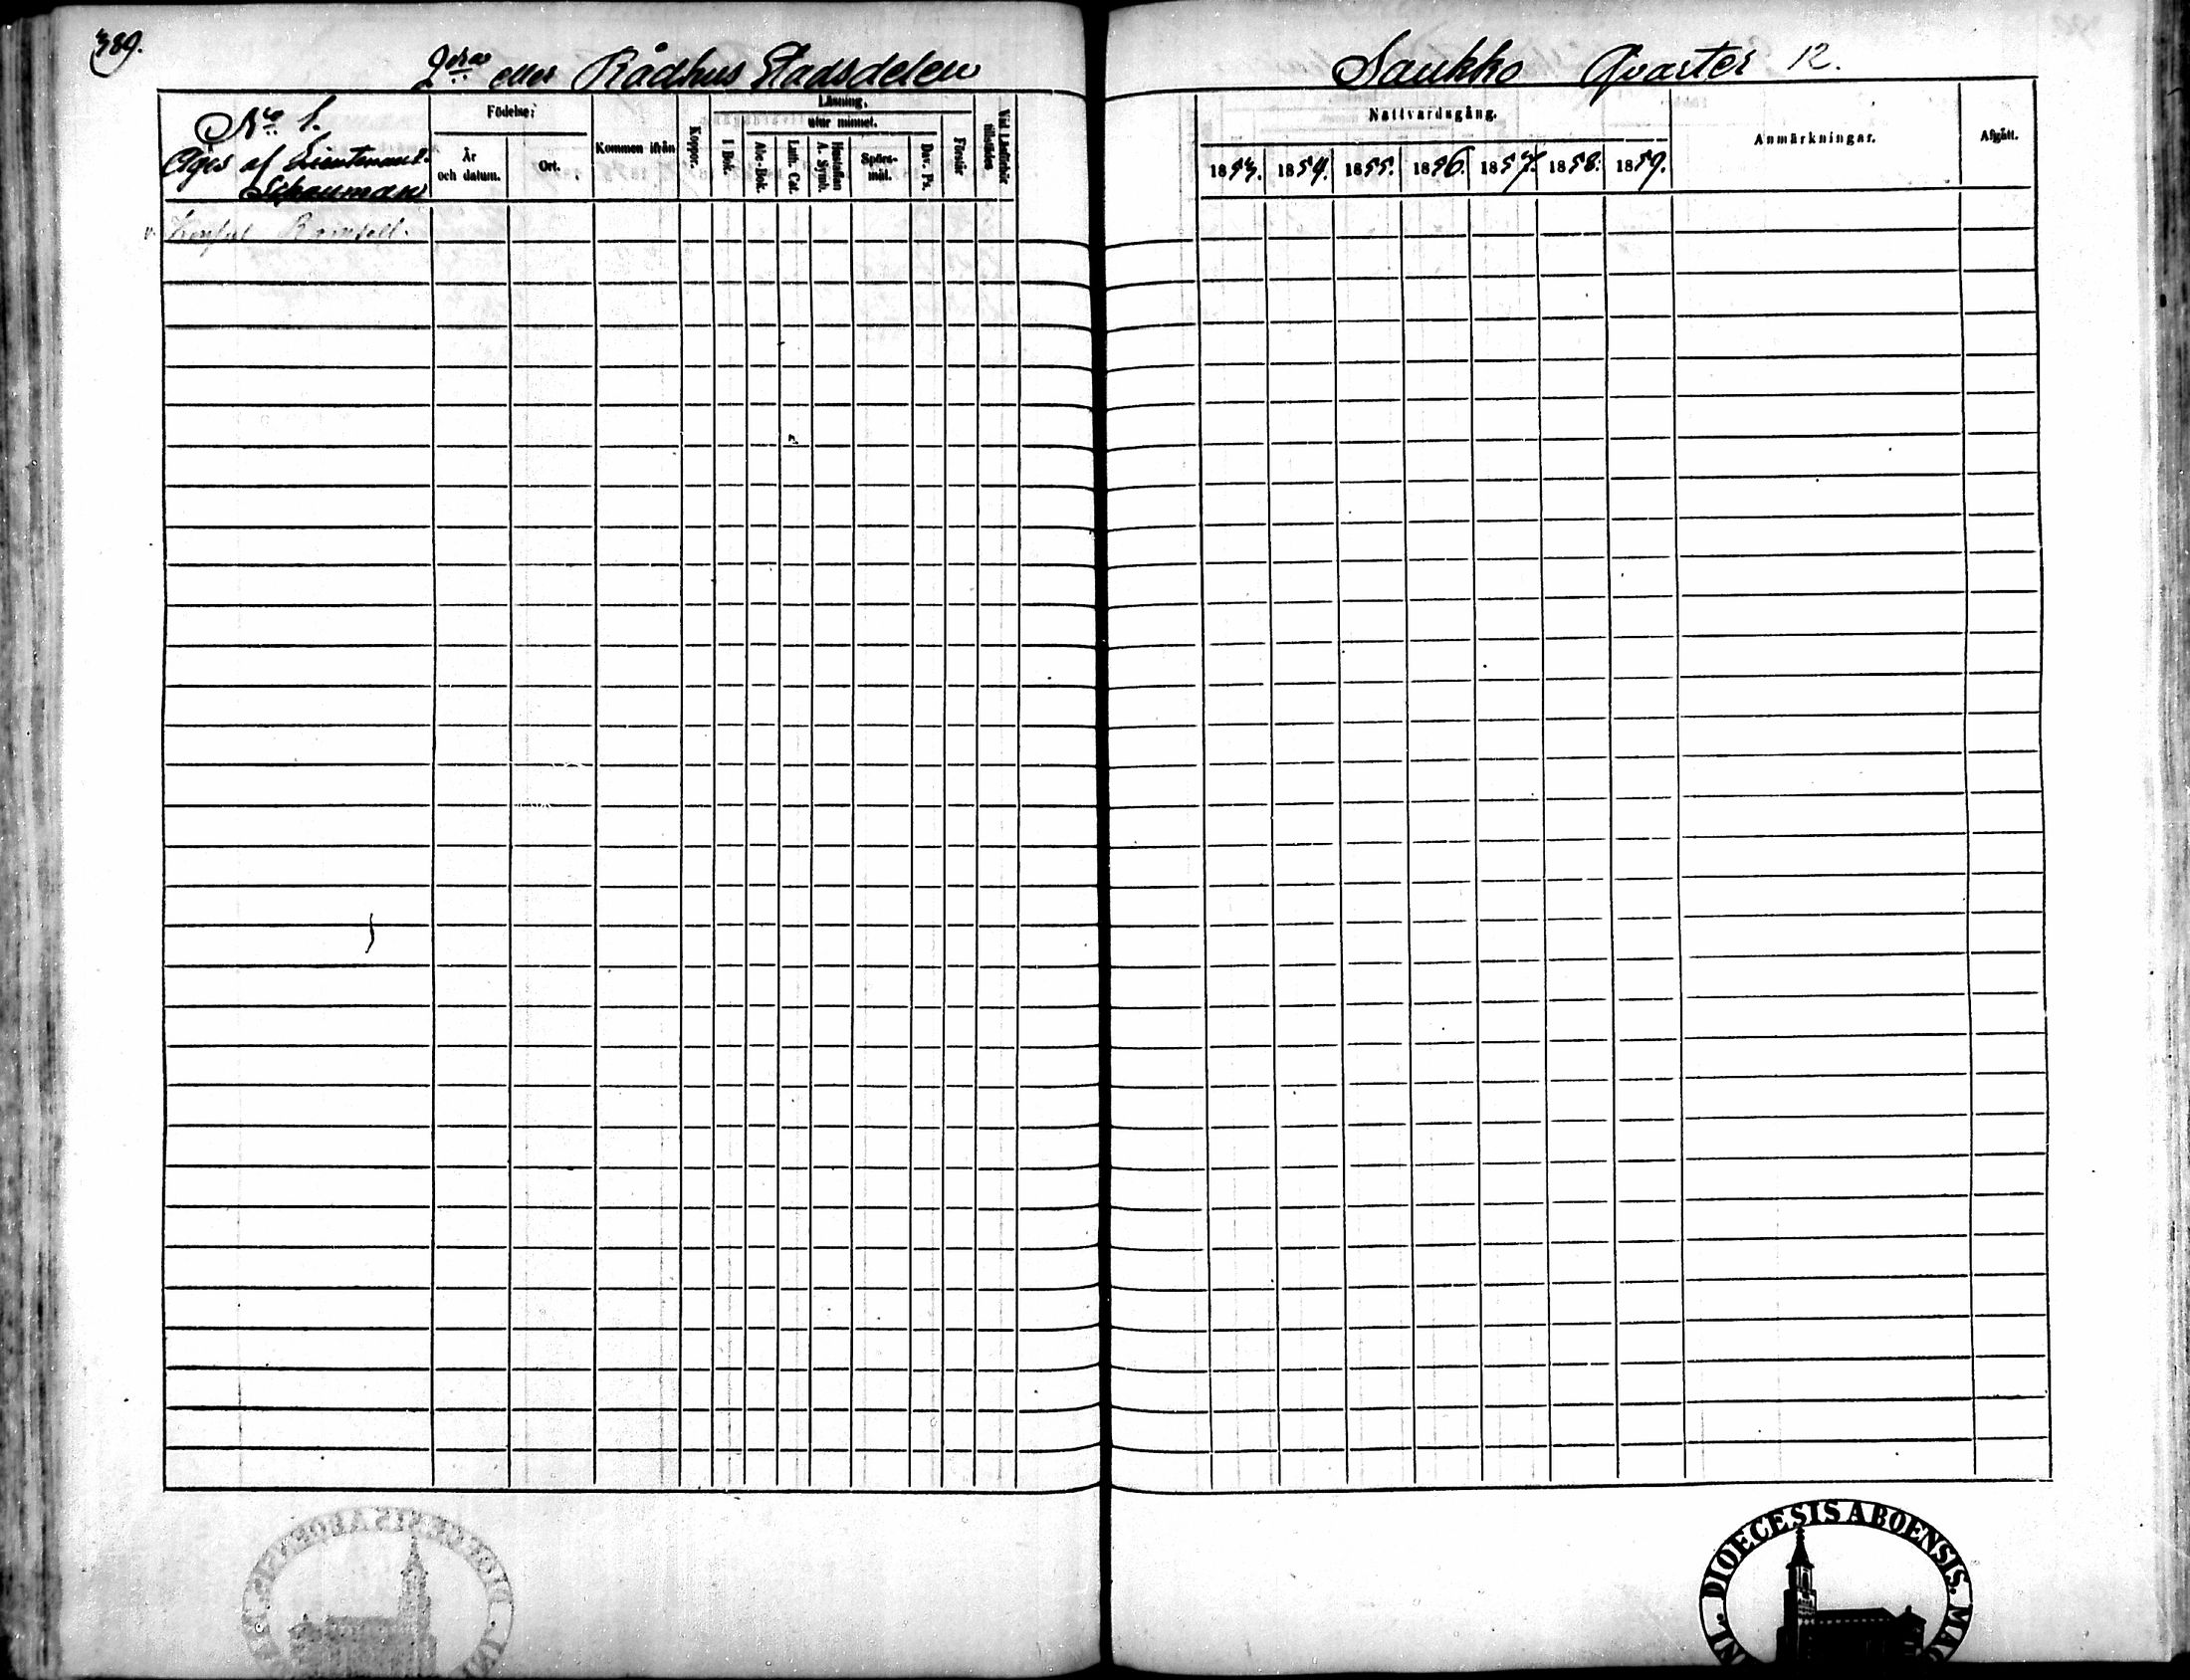 389.
2dra eller Rådhus Stadsdelen
No 1.
Äges af Lieutenant
Schauman
Födelse;
År
och datum.
Ort.
Kommen ifrån
Koppor.
Läsning.
I Bok.
utur minnet.
Abc-Bok.
Luth. Cat.
Hustaflan
A. Symb.
Spörs-
mål.
Dav. Ps.
Förstår
Vid Läsförhör
tillstädes
Konsul
Saukko Qvarter 12.
Nattvardsgång.
1853.
1854.
1855.
1856.
1857.
1858.
1859.
Anmärkningar.
Afgått.
DIOECESIS ABOENSIS.